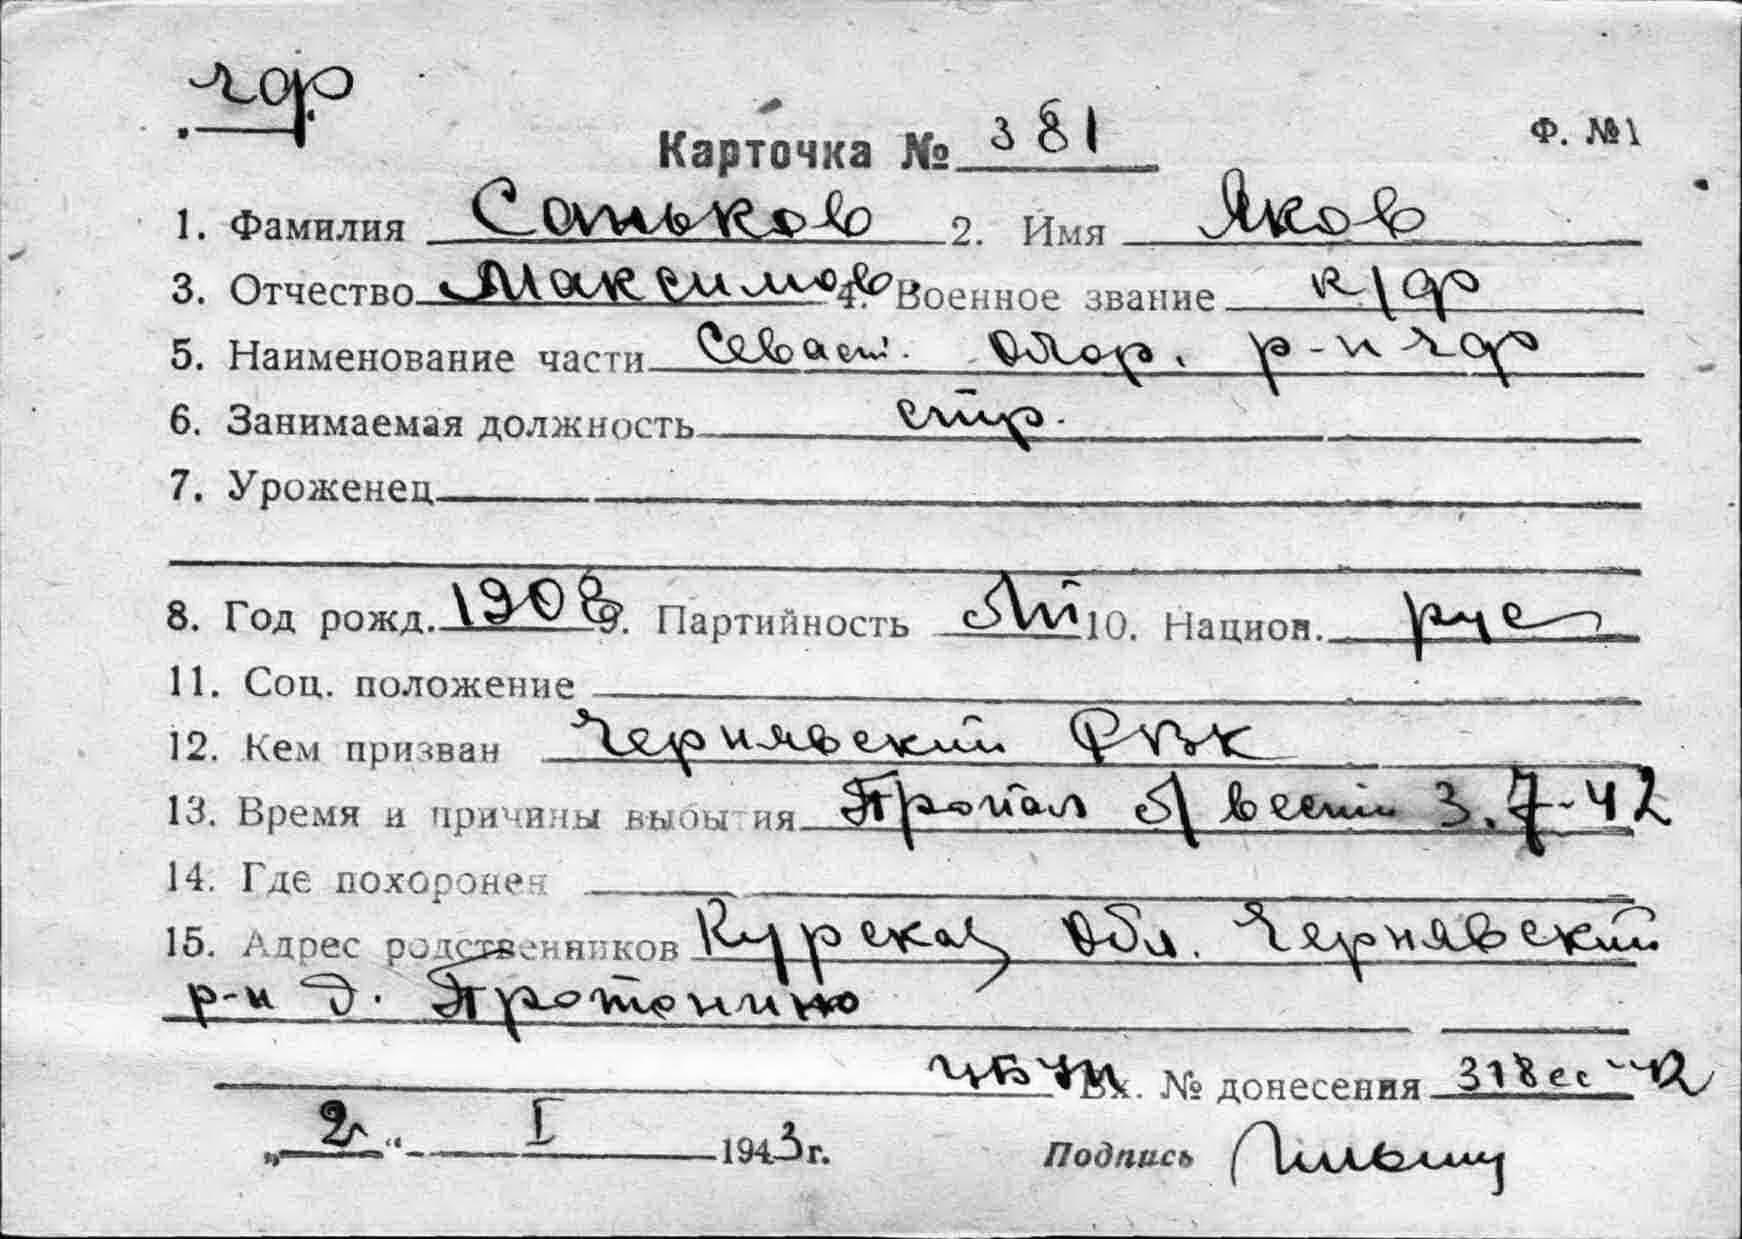 чф
Карточка № 381
Ф. №1
1. Фамилия Саньков 2. Имя Яков
3. Отчество Максимов. 4. Военное звание к/ф
5. Наименование части Сваст. Обор. р-н чф
6. Занимаемая должность стр.
7. Уроженец
8. Год рожд. 1908 9. Партийность б/п 10. Национ. рус
11. Соц. положение
12. Кем призван Чернявский РВК
13. Время и причины выбытия Пропал б/вести 3.7-42
14. Где похоронен
15. Адрес родственников Курская обл. Чернявский
р-н д. Протонино
Вх. № донесения 318сс
"2" I 1943г. Подпись